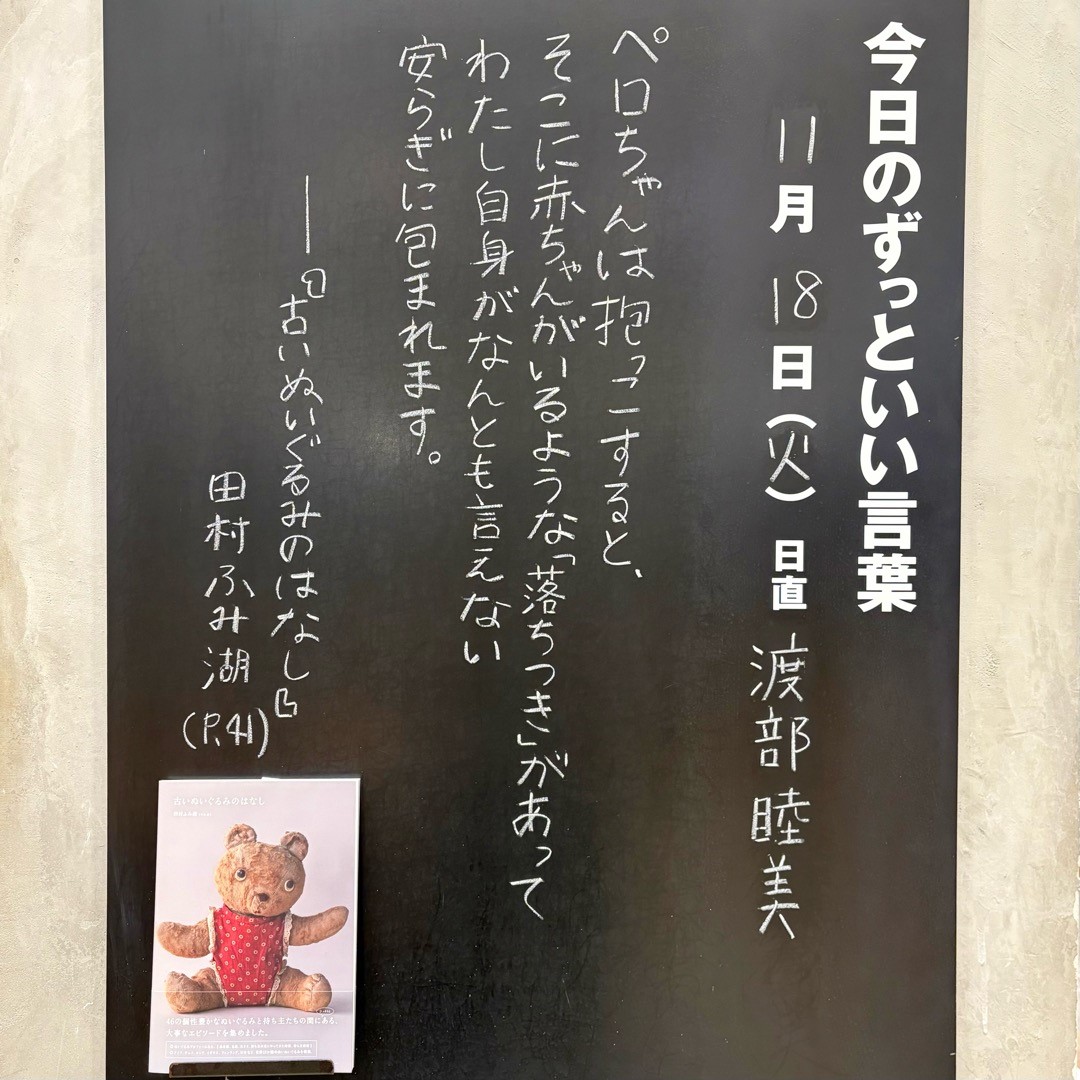 今日のずっといい言葉
11月18日(火) 日直 渡部 睦美
ペロちゃんは抱っこすると、
そこに赤ちゃんがいるような「落ちつき」があって
わたし自身がなんとも言えない
安らぎに包まれます。
――『古いぬいぐるみのはなし』
田村ふみ湖
(P.41)
古いぬいぐるみのはなし
46の個性豊かなぬいぐるみと持ち主たちの間にある、
大事なエピソードを集めました。